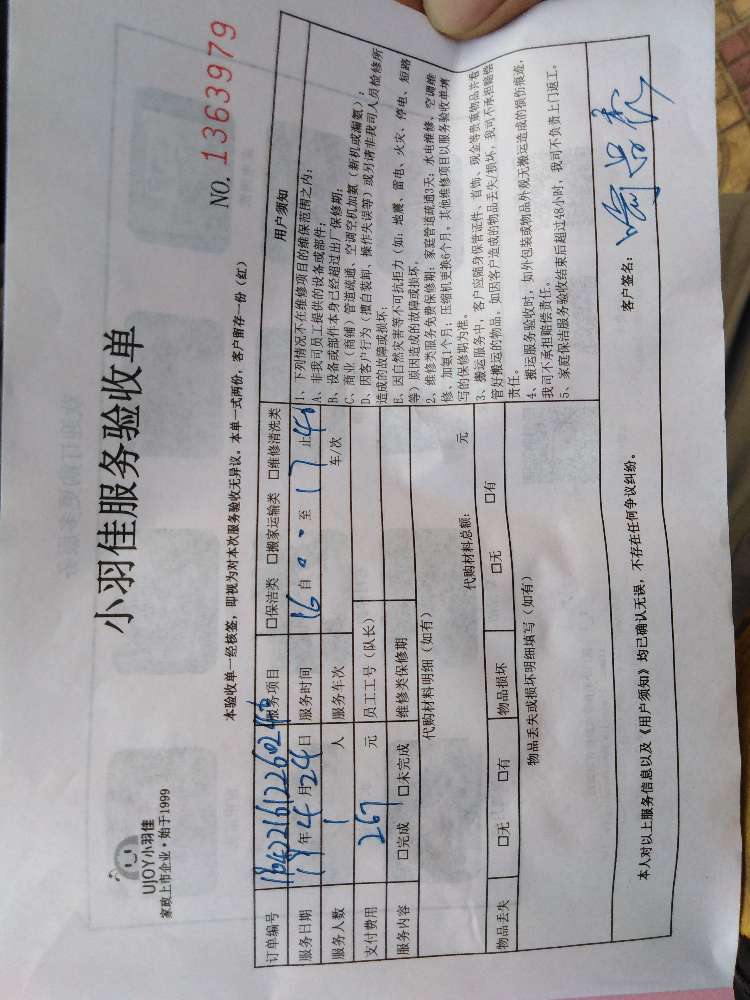 UJOY小羽佳
家政上市企业·始于1999
小羽佳服务验收单
NO. 1363979
本验收单一经核签，即视为对本次服务验收无异议。本单一式两份，客户留存一份（红）
订单编号 服务项目 □保洁类 □搬家运输类 □维修清洗类
服务日期 19年4月24日 服务时间 16自00至17止40
服务人数 1 人 服务车次 车/次
支付费用 267 元 员工工号（队长）
服务内容 □完成 □未完成 维修类保修期
代购材料明细（如有）
代购材料总额： 元
物品丢失 □无 □有 物品损坏 □无 □有
物品丢失或损坏明细填写（如有）
用户须知
1、下列情况不在维修项目的维保范围之内：
A、非我司员工提供的设备或部件；
B、设备或部件本身已经超过出厂保修期；
C、商业（商铺）管道疏通、空调空机加氨（新机或漏氨）；
D、因客户行为（擅自装卸、操作失误等）或另请非我司人员检修所
造成的故障或损坏；
E、因自然灾害等不可抗拒力（如：地震、雷电、火灾、停电、短路
等）原因造成的故障或损坏。
2、维修类服务免费保修期：家庭管道疏通3天；水电维修、空调维
修、加氨1个月；压缩机更换6个月。其他维修项目以服务验收单填
写的保修期为准。
3、搬运服务中，客户应随身保管证件、首饰、现金等贵重物品并看
管好搬运的物品，如因客户造成的物品丢失/损坏，我司不承担赔偿
责任。
4、搬运服务验收时，如外包装或物品外观无搬运造成的损伤痕迹，
我司不承担赔偿责任。
5、家庭保洁服务验收结束后超过48小时，我司不负责上门返工。
本人对以上服务信息以及《用户须知》均已确认无误，不存在任何争议纠纷。
客户签名：